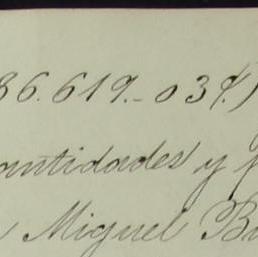 36.619.-03 %)
antidades y p
Miguel Bu